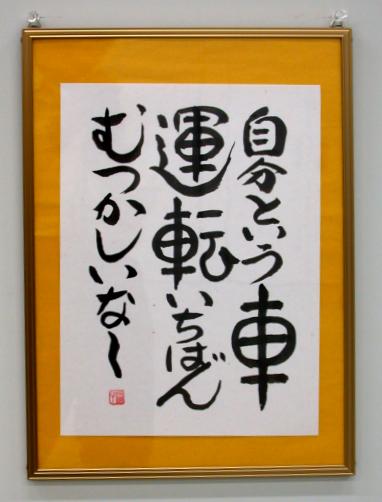 自分という車
運転いちばん
むつかしいな〜